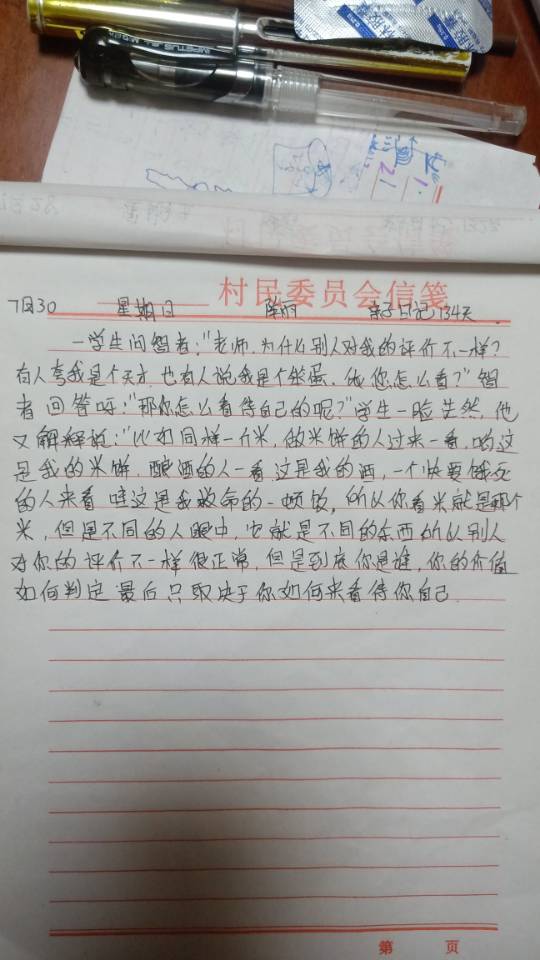 村民委员会信笺
7月30 星期日 陈丽 亲子日记134天
一学生问智者:"老师,为什么别人对我的评价不一样?
有人夸我是个天才,也有人说我是个笨蛋,依您怎么看?"智
者回答呀:"那你怎么看待自己的呢?"学生一脸茫然,他
又解释说:"比如同样一斤米,做米饼的人过来一看,哟这
是我的米饼,酿酒的人一看这是我的酒,一个快要饿死
的人来看 哇这是我救命的一顿饭,所以你看米就是那个
米,但是不同的人眼中,它就是不同的东西所以别人
对你的评价不一样很正常,但是到底你是谁,你的价值
如何判定 最后只取决于你如何来看待你自己.
第 页